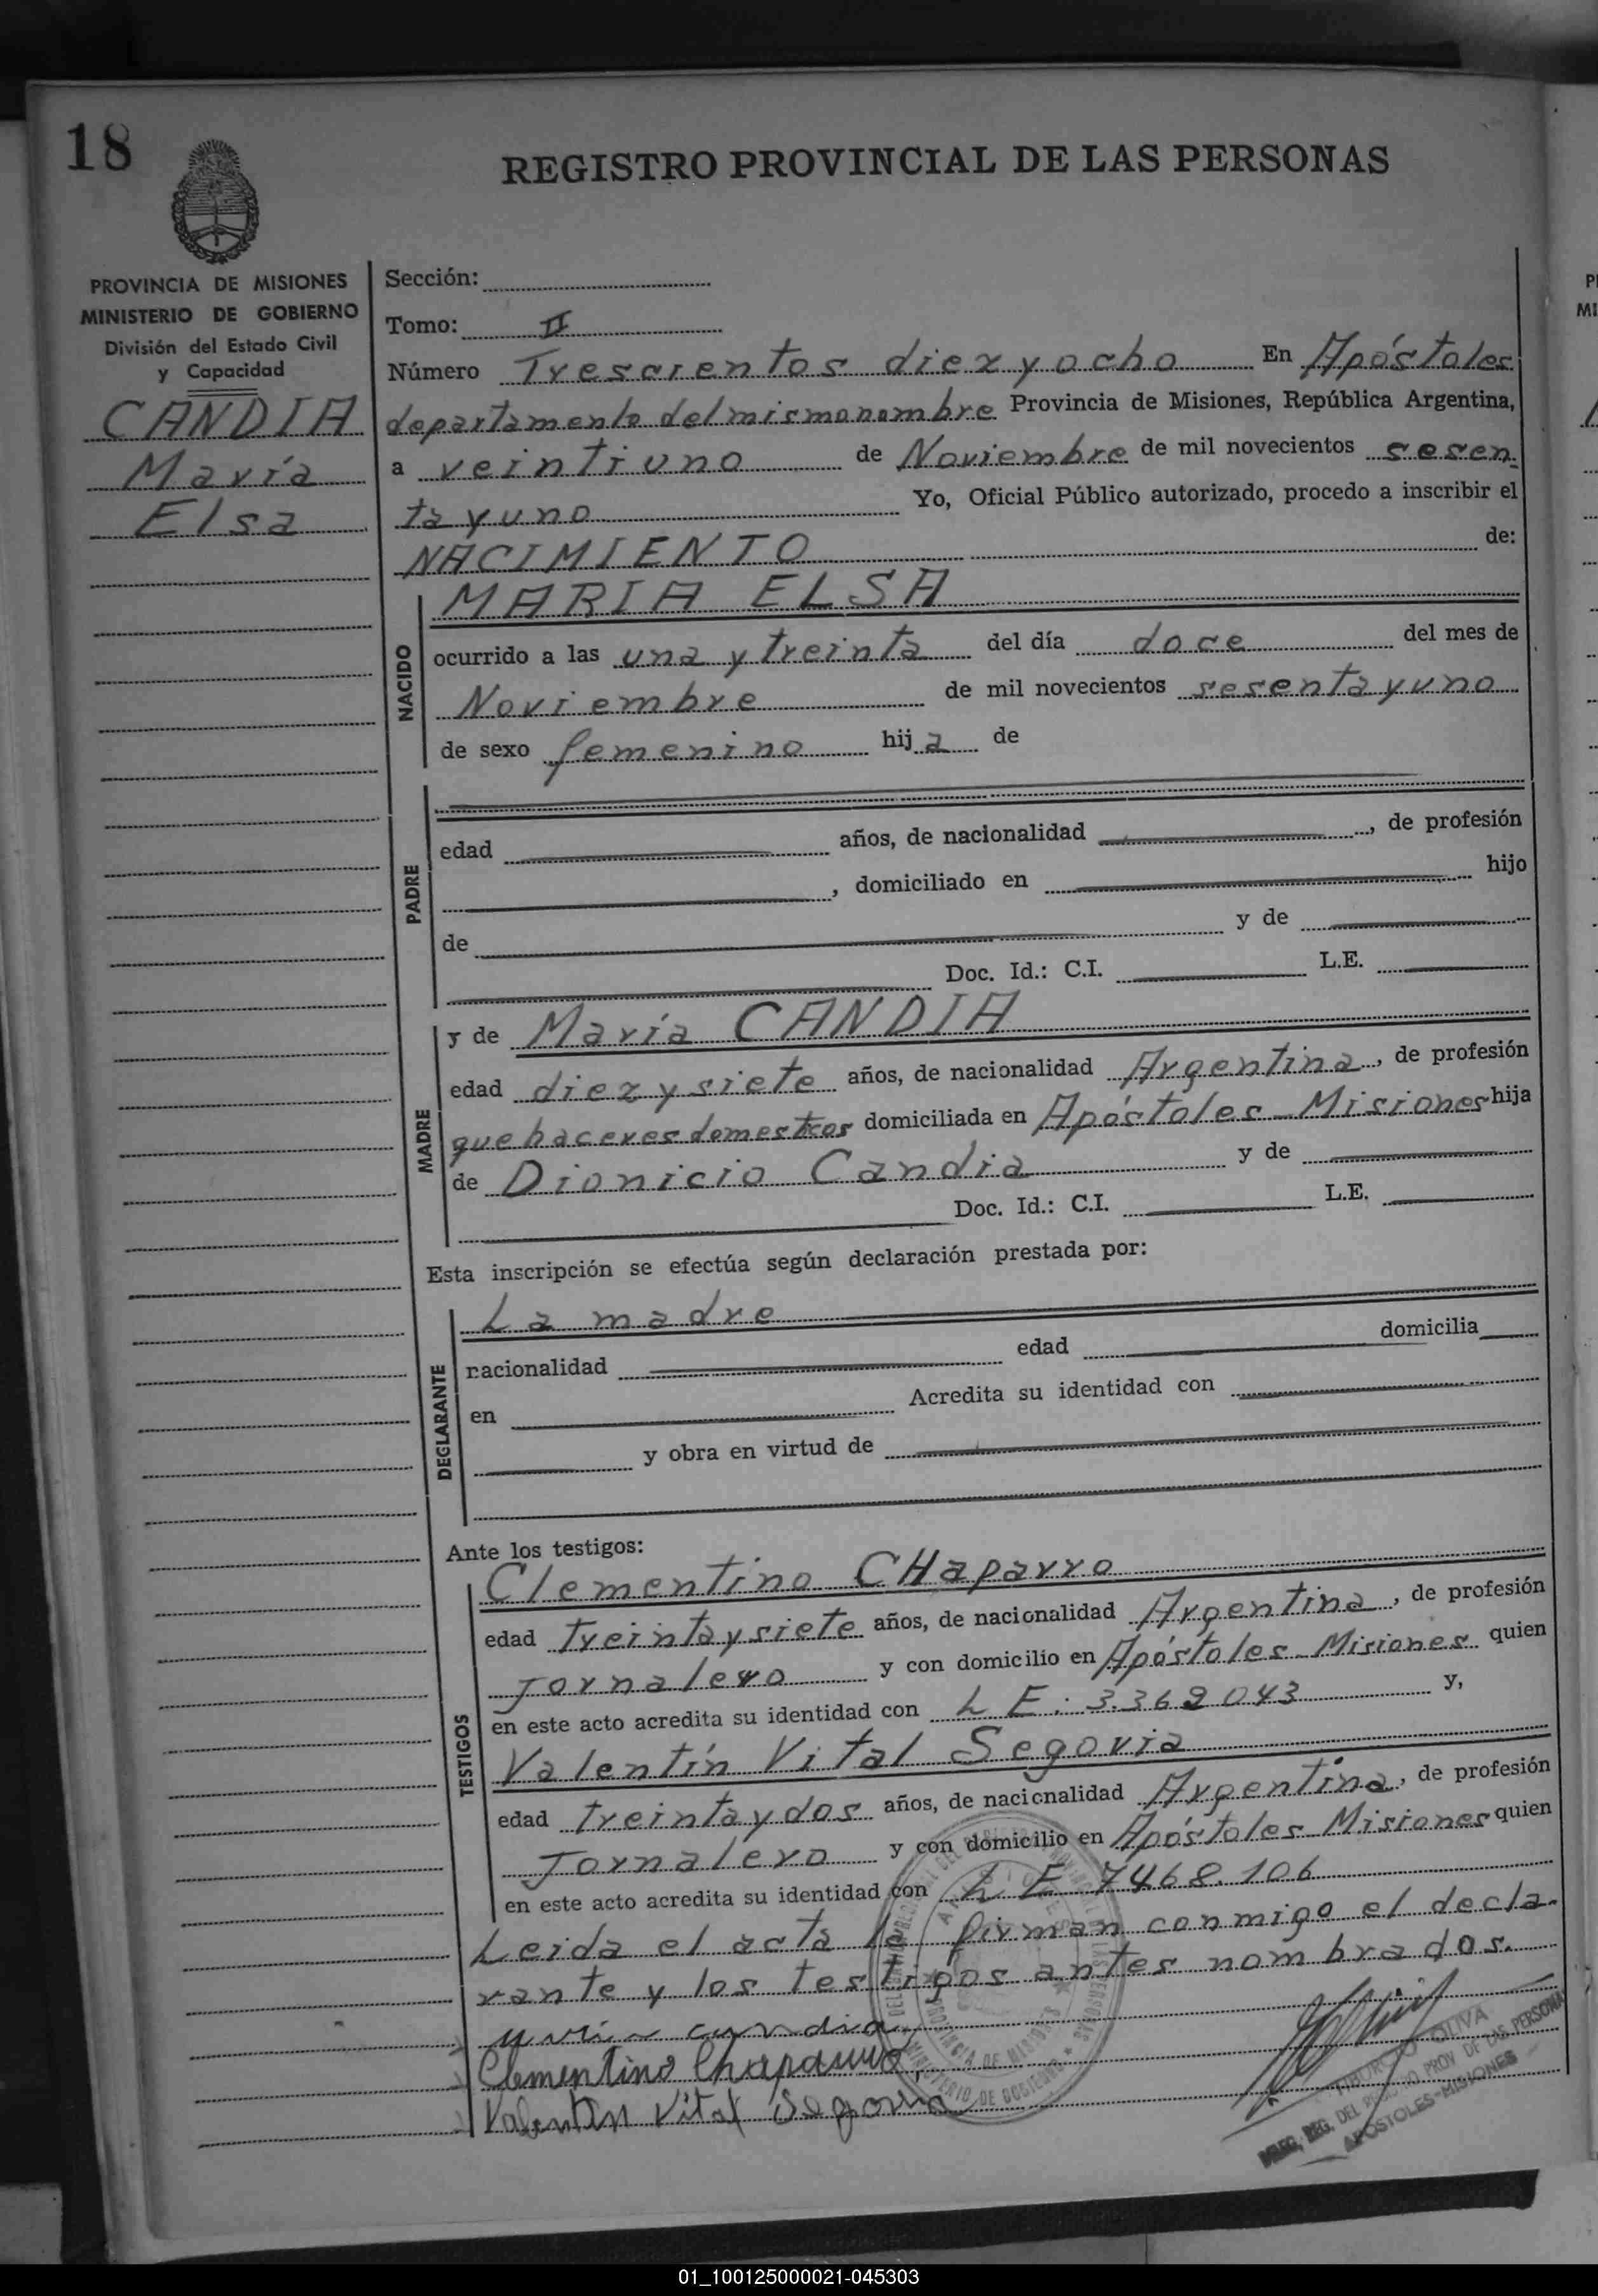 18
REGISTRO PROVINCIAL DE LAS PERSONAS
PROVINCIA DE MISIONES
MINISTERIO DE GOBIERNO
División del Estado Civil
y Capacidad
CANDIA
María
Elsa
Sección:
Tomo: II
Número Trescientos diez y ocho En Apóstoles
departamento del mismo nombre Provincia de Misiones, República Argentina,
a veintiuno de Noviembre de mil novecientos sesen
ta y uno Yo, Oficial Público autorizado, procedo a inscribir el
NACIMIENTO de:
NACIDO
MARIA ELSA
ocurrido a las una y treinta del día doce del mes de
Noviembre de mil novecientos sesenta y uno
de sexo femenino hija de
PADRE
edad años, de nacionalidad , de profesión
, domiciliado en hijo
de y de
Doc. Id.: C.I. L.E.
MADRE
y de María CANDIA
edad diez y siete años, de nacionalidad Argentina, de profesión
quehaceres domesticos domiciliada en Apóstoles - Misiones hija
de Dionicio Candia y de
Doc. Id.: C.I. L.E.
Esta inscripción se efectúa según declaración prestada por:
DECLARANTE
La madre
nacionalidad edad domicilia
en Acredita su identidad con
y obra en virtud de
Ante los testigos:
TESTIGOS
Clementino CHaparro
edad treinta y siete años, de nacionalidad Argentina, de profesión
Jornalero y con domicilio en Apóstoles - Misiones quien
en este acto acredita su identidad con L E: 3.362043 y,
Valentín Vital Segovia
edad treinta y dos años, de nacionalidad Argentina, de profesión
Jornalero y con domicilio en Apóstoles - Misiones quien
en este acto acredita su identidad con L E 7468.106
Leida el acta la firman conmigo el decla-
rante y los testigos antes nombrados.
maria candia
Clementino Chaparro
Valentin Vital Segovia
OLIVA
DEL REGISTRO PROV DE LAS PERSONAS
APOSTOLES-MISIONES
PROVINCIA DE MISIONES
MINISTERIO DE GOBIERNO
01_100125000021-045303